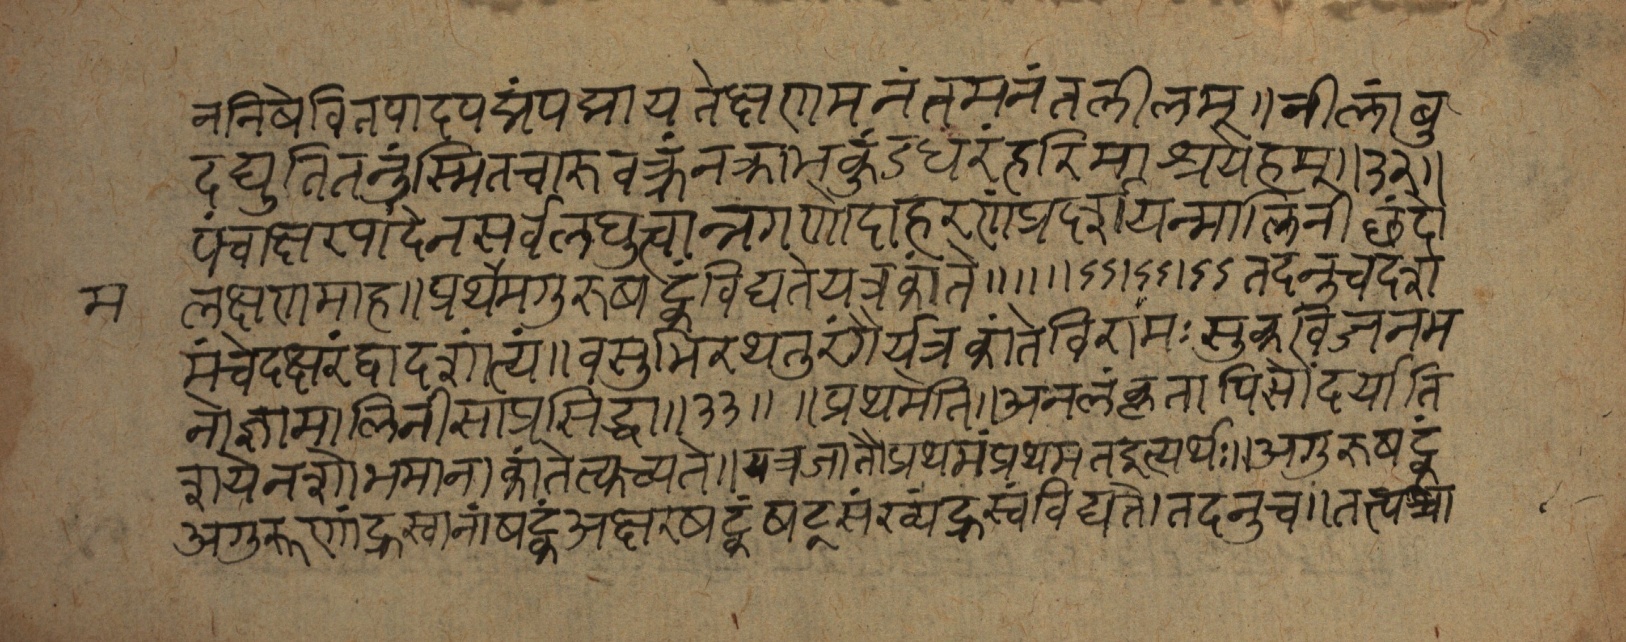 ननिषेवितपादपद्मंपद्मायतेक्षणमनंतमनंतलीलम्॥नीलांबु
दद्युतितनुंस्मितचारुवक्त्रंनक्राभकुंडधरंहरिमाश्रयेहम्॥३२॥
पंचाक्षरपादेनसर्वलघुत्वान्नगणोदाहरणंप्रदर्शयन्मालिनीछंदो
म लक्षणमाह॥प्रथममगुरुषट्कंविद्यतेयत्रकांते॥।॥।ऽऽ।ऽऽ।ऽऽतदनुचदश
मंचेदक्षरंद्वादशांत्यं॥वसुभिरथतुरंगैर्यत्रकांतेविरामःसुकविजनम
नोज्ञामालिनीसाप्रसिद्धा॥३३॥॥प्रथमेति॥अनलंकृतापिसौंदर्याति
शयेनशोभमानाकांतेत्युच्यते॥यत्रजातौप्रथमंप्रथमतइत्यर्थः॥अगुरुषट्कं
अगुरूणांह्रस्वानांषट्कंअक्षरषट्कंषट्संख्यंह्रस्वंविद्यते।तदनुच॥तत्पश्चा